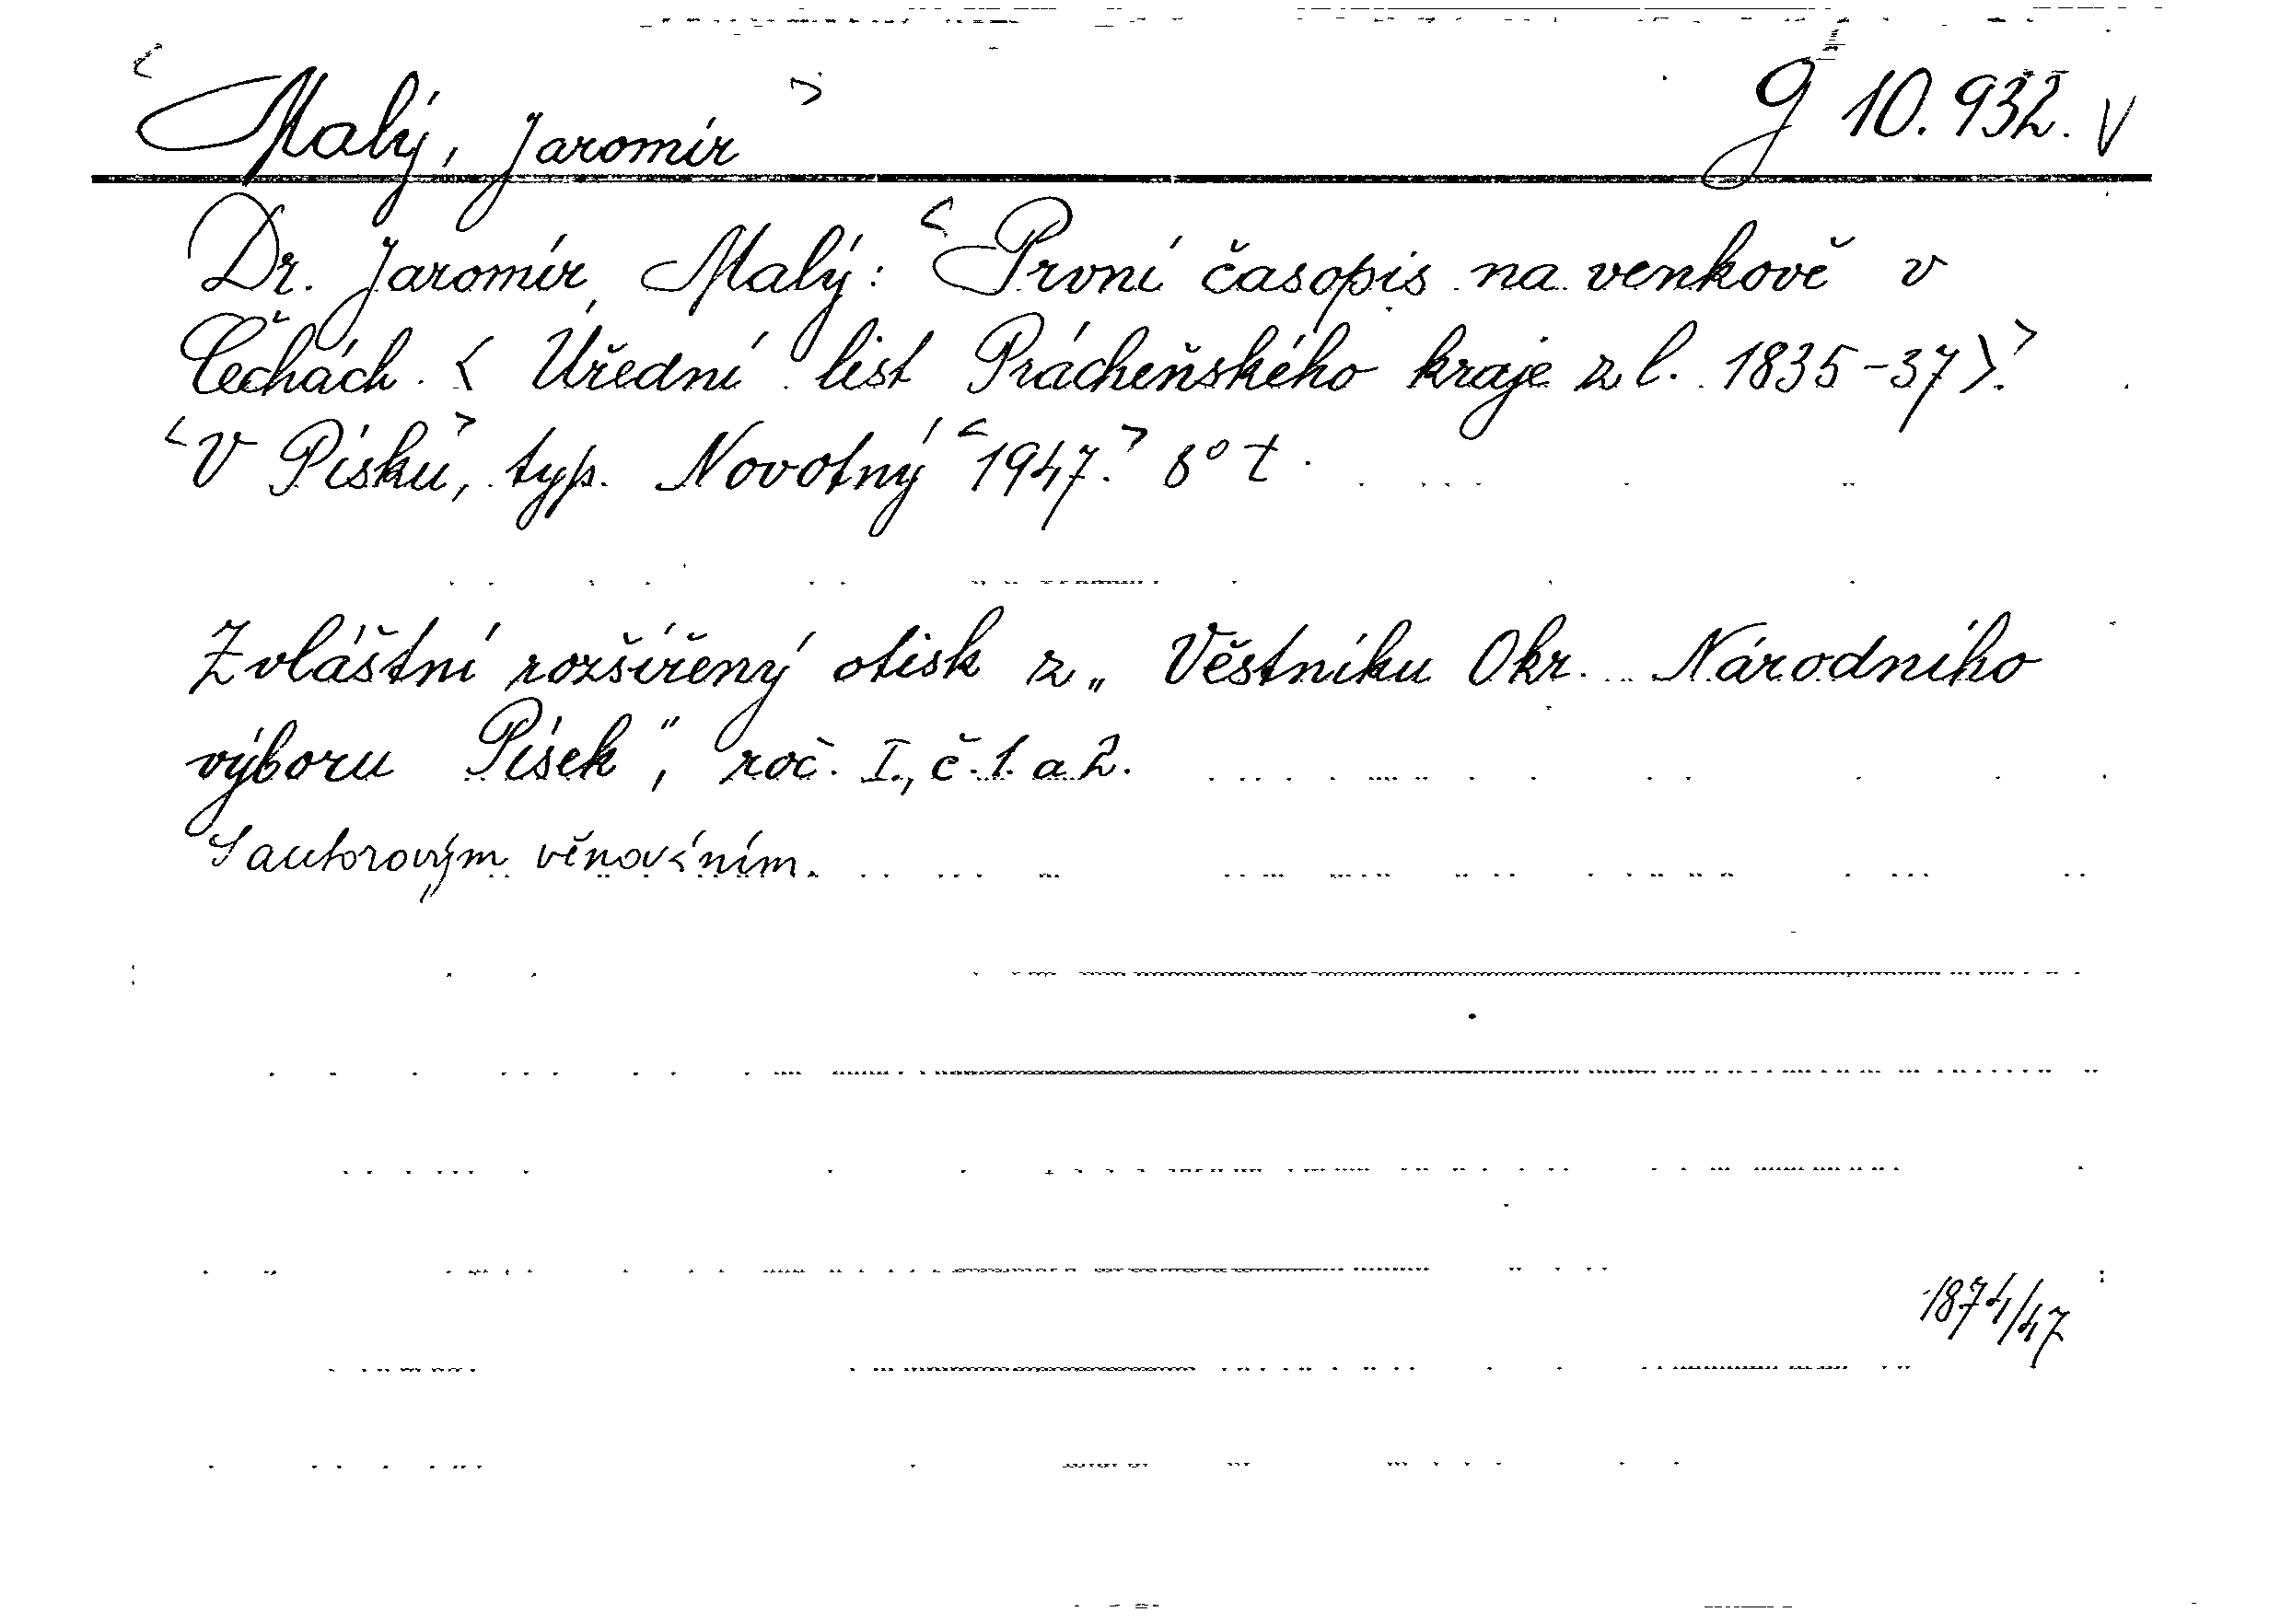 <Malý, Jaromír> g 10.932. V
Dr. Jaromír Malý: <První časopis na venkově v
Čechách. <Úřední list Prácheňského kraje z l. 1835-37>.>
<V Písku>, typ. Novotný <1947.> 8° t.
Zvláštní rozšířený otisk z „Věstníku Okr. Národního
výboru Písek", roč. I., č. 1. a 2.
S autorovým věnováním.
1874/47